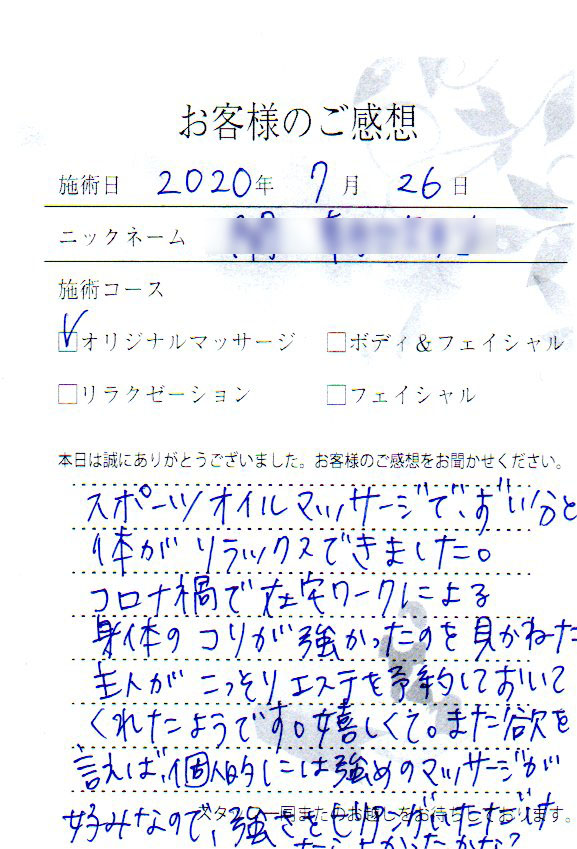 お客様のご感想
施術日 2020年 7月 26日
ニックネーム
施術コース
オリジナルマッサージ ボディ&フェイシャル
リラクゼーション フェイシャル
本日は誠にありがとうございました。お客様のご感想をお聞かせください。
スポーツオイルマッサージで、ずい分と
体がリラックスできました。
コロナ禍で在宅ワークによる
身体のコリが強かったのを見かねた
主人がこっそりエステを予約しておいて
くれたようです。嬉しくて。また欲を
言えば、個人的には強めのマッサージが
好みなので、強さをヒアリングいただけ
スタッフ一同またのお越しをお待ちしております。
たらよかったかな?